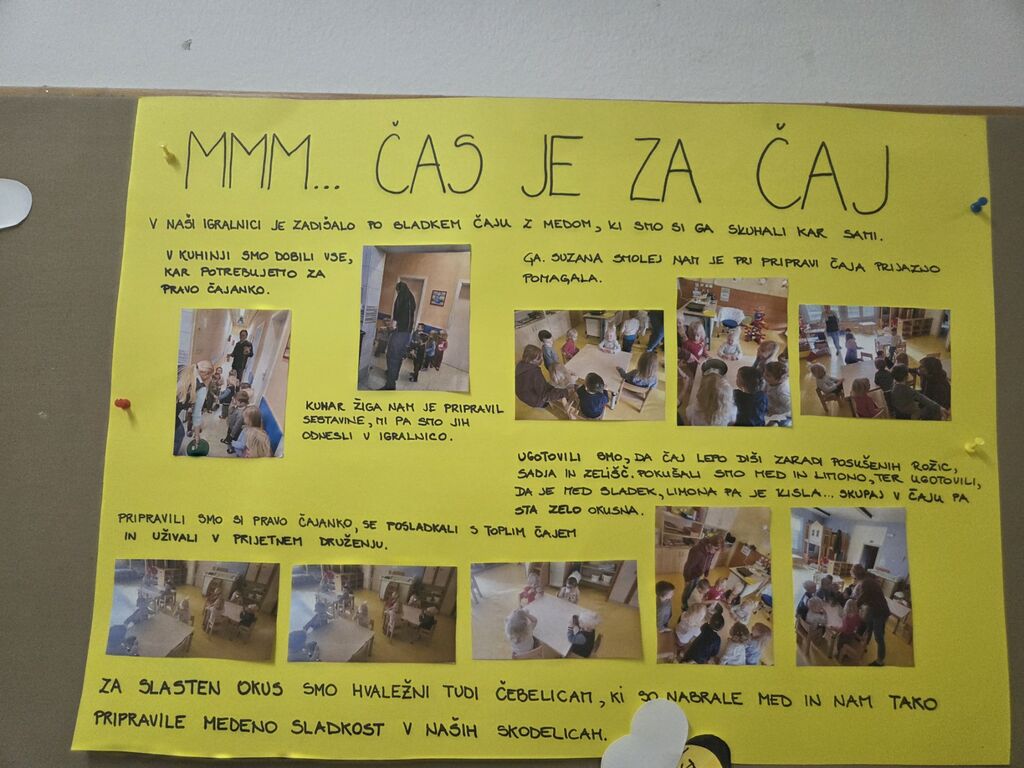 MMM... ČAS JE ZA ČAJ
V NAŠI IGRALNICI JE ZADIŠALO PO SLADKEM ČAJU Z MEDOM, KI SMO SI GA SKUHALI KAR SAMI.
V KUHINJI SMO DOBILI VSE,
KAR POTREBUJEMO ZA
PRAVO ČAJANKO.
GA. SUZANA SMOLEJ NAM JE PRI PRIPRAVI ČAJA PRIJAZNO
POMAGALA.
KUHAR ŽIGA NAM JE PRIPRAVIL
SESTAVINE, MI PA SMO JIH
ODNESLI V IGRALNICO.
UGOTOVILI SMO, DA ČAJ LEPO DIŠI ZARADI POSUŠENIH ROŽIC,
SADJA IN ZELIŠČ. POKUŠALI SMO MED IN LIMONO, TER UGOTOVILI,
DA JE MED SLADEK, LIMONA PA JE KISLA... SKUPAJ V ČAJU PA
STA ZELO OKUSNA.
PRIPRAVILI SMO SI PRAVO ČAJANKO, SE POSLADKALI S TOPLIM ČAJEM
IN UŽIVALI V PRIJETNEM DRUŽENJU.
ZA SLASTEN OKUS SMO HVALEŽNI TUDI ČEBELICAM, KI SO NABRALE MED IN NAM TAKO
PRIPRAVILE MEDENO SLADKOST V NAŠIH SKODELICAH.